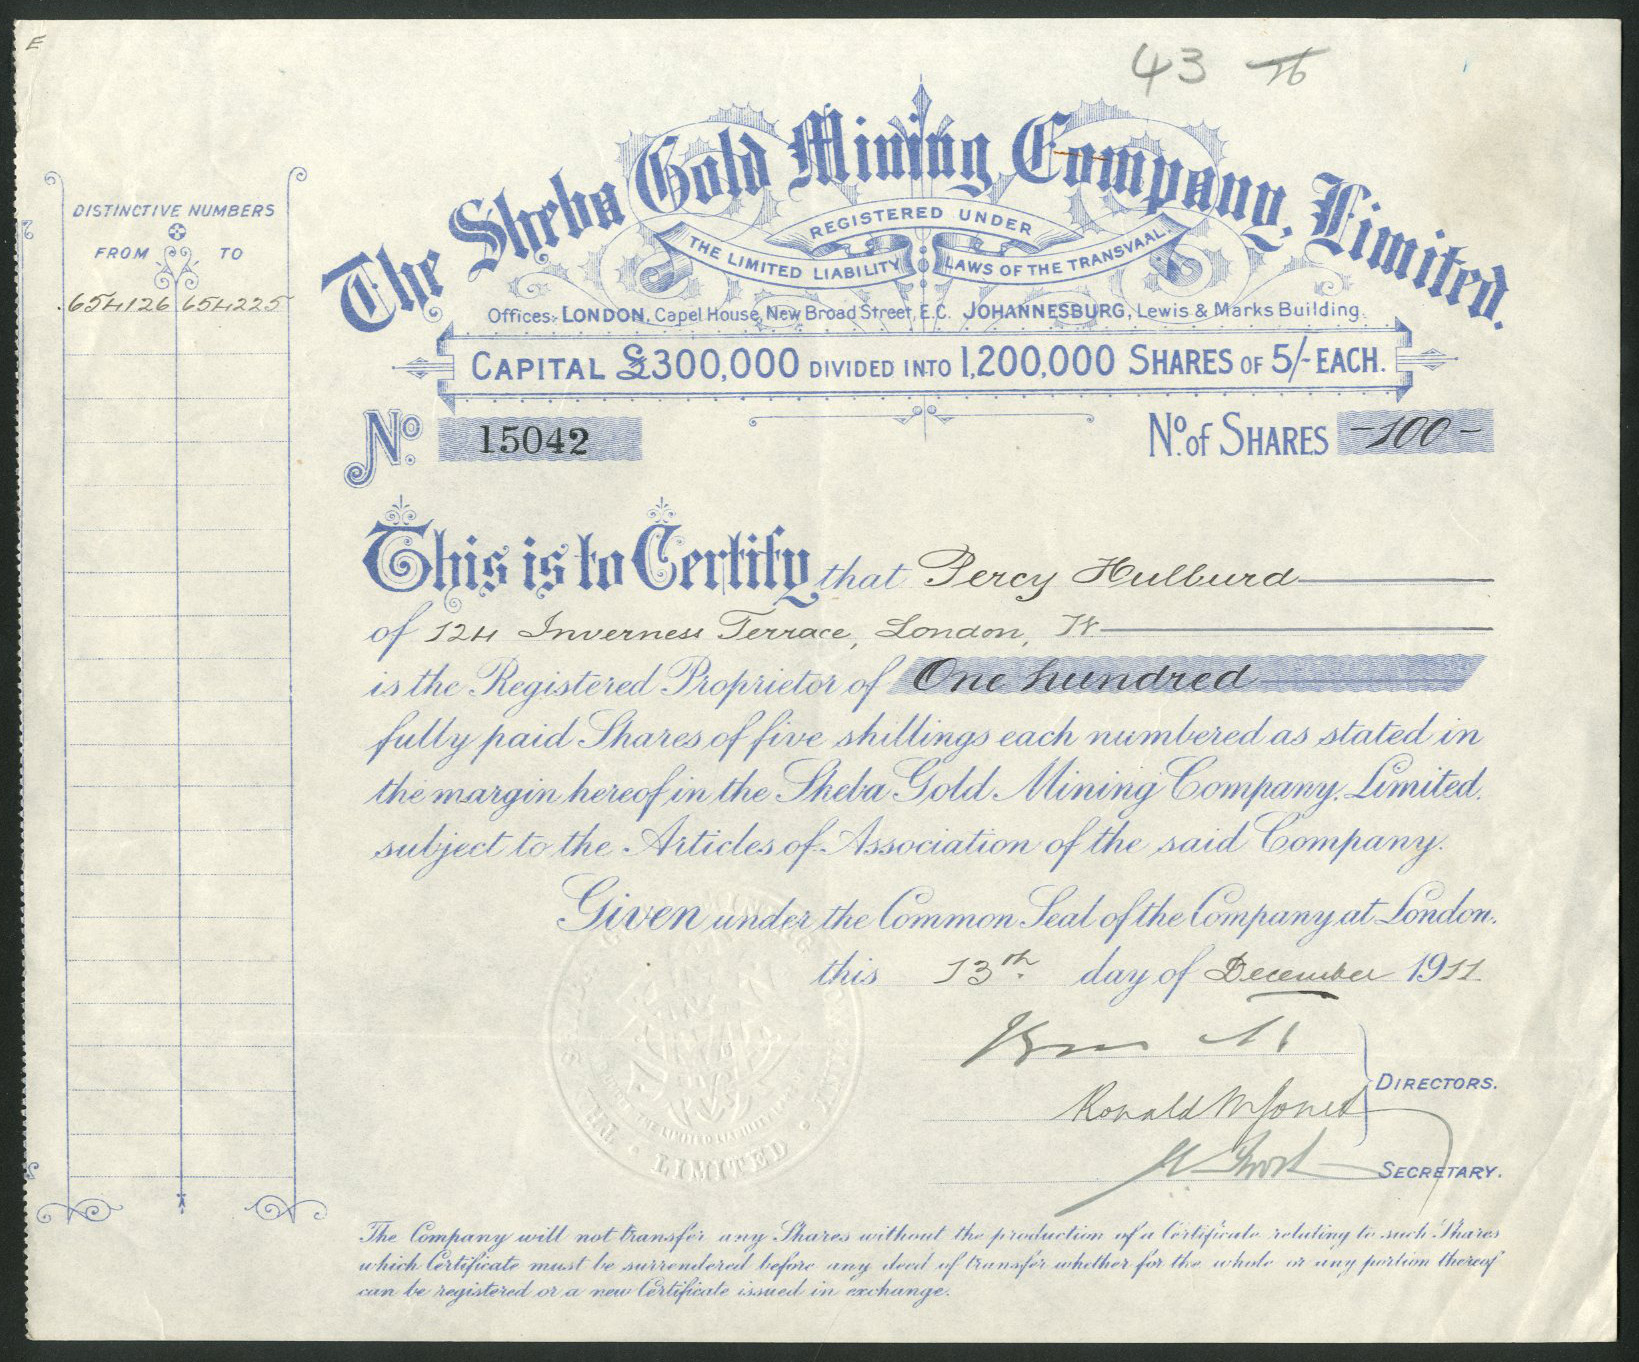 E
43
The Sheba Gold Mining Company, Limited.
REGISTERED UNDER
THE LIMITED LIABILITY LAWS OF THE TRANSVAAL.
Offices:- LONDON, Capel House, New Broad Street, E.C. JOHANNESBURG, Lewis & Marks Building.
CAPITAL £300,000 DIVIDED INTO 1,200,000 SHARES OF 5/- EACH.
DISTINCTIVE NUMBERS
FROM TO
654126 654225
No. 15042
No. of SHARES -100-
This is to Certify that Percy Hulburd
of 124 Inverness Terrace, London, W
is the Registered Proprietor of One hundred
fully paid Shares of five shillings each numbered as stated in
the margin hereof in the Sheba Gold Mining Company, Limited,
subject to the Articles of Association of the said Company.
Given under the Common Seal of the Company at London,
this 13th day of December 1911
DIRECTORS.
Ronald W Jones
SECRETARY.
LIMITED
The Company will not transfer any Shares without the production of a Certificate relating to such Shares
which Certificate must be surrendered before any deed of transfer whether for the whole or any portion thereof
can be registered or a new Certificate issued in exchange.